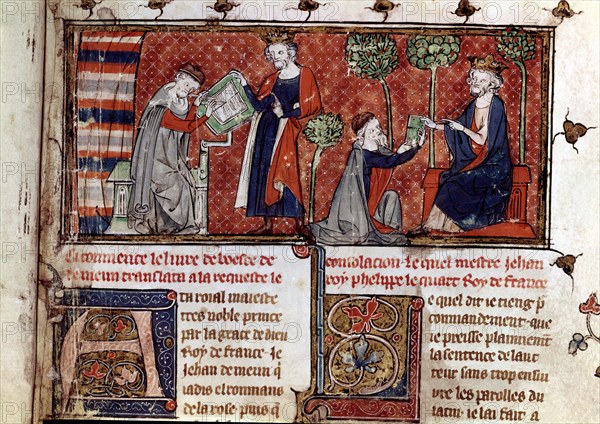 Ci comence le livre de boece de consolacion. le quel mestre jehan
de meun translata a la requeste le roy phelippe le quart Roy de france
A ta roial maieste
tres noble prince
par la grace de dieu
Roy de france. Je
jehan de meun q
iadis el rommans
de la rose. puis q
e quel dit ie tieng p
commandement. que
ie preisse plainement
la sentence de lauc
teur sans trop ensiu
vre les parolles du
latin. ie lai fait a